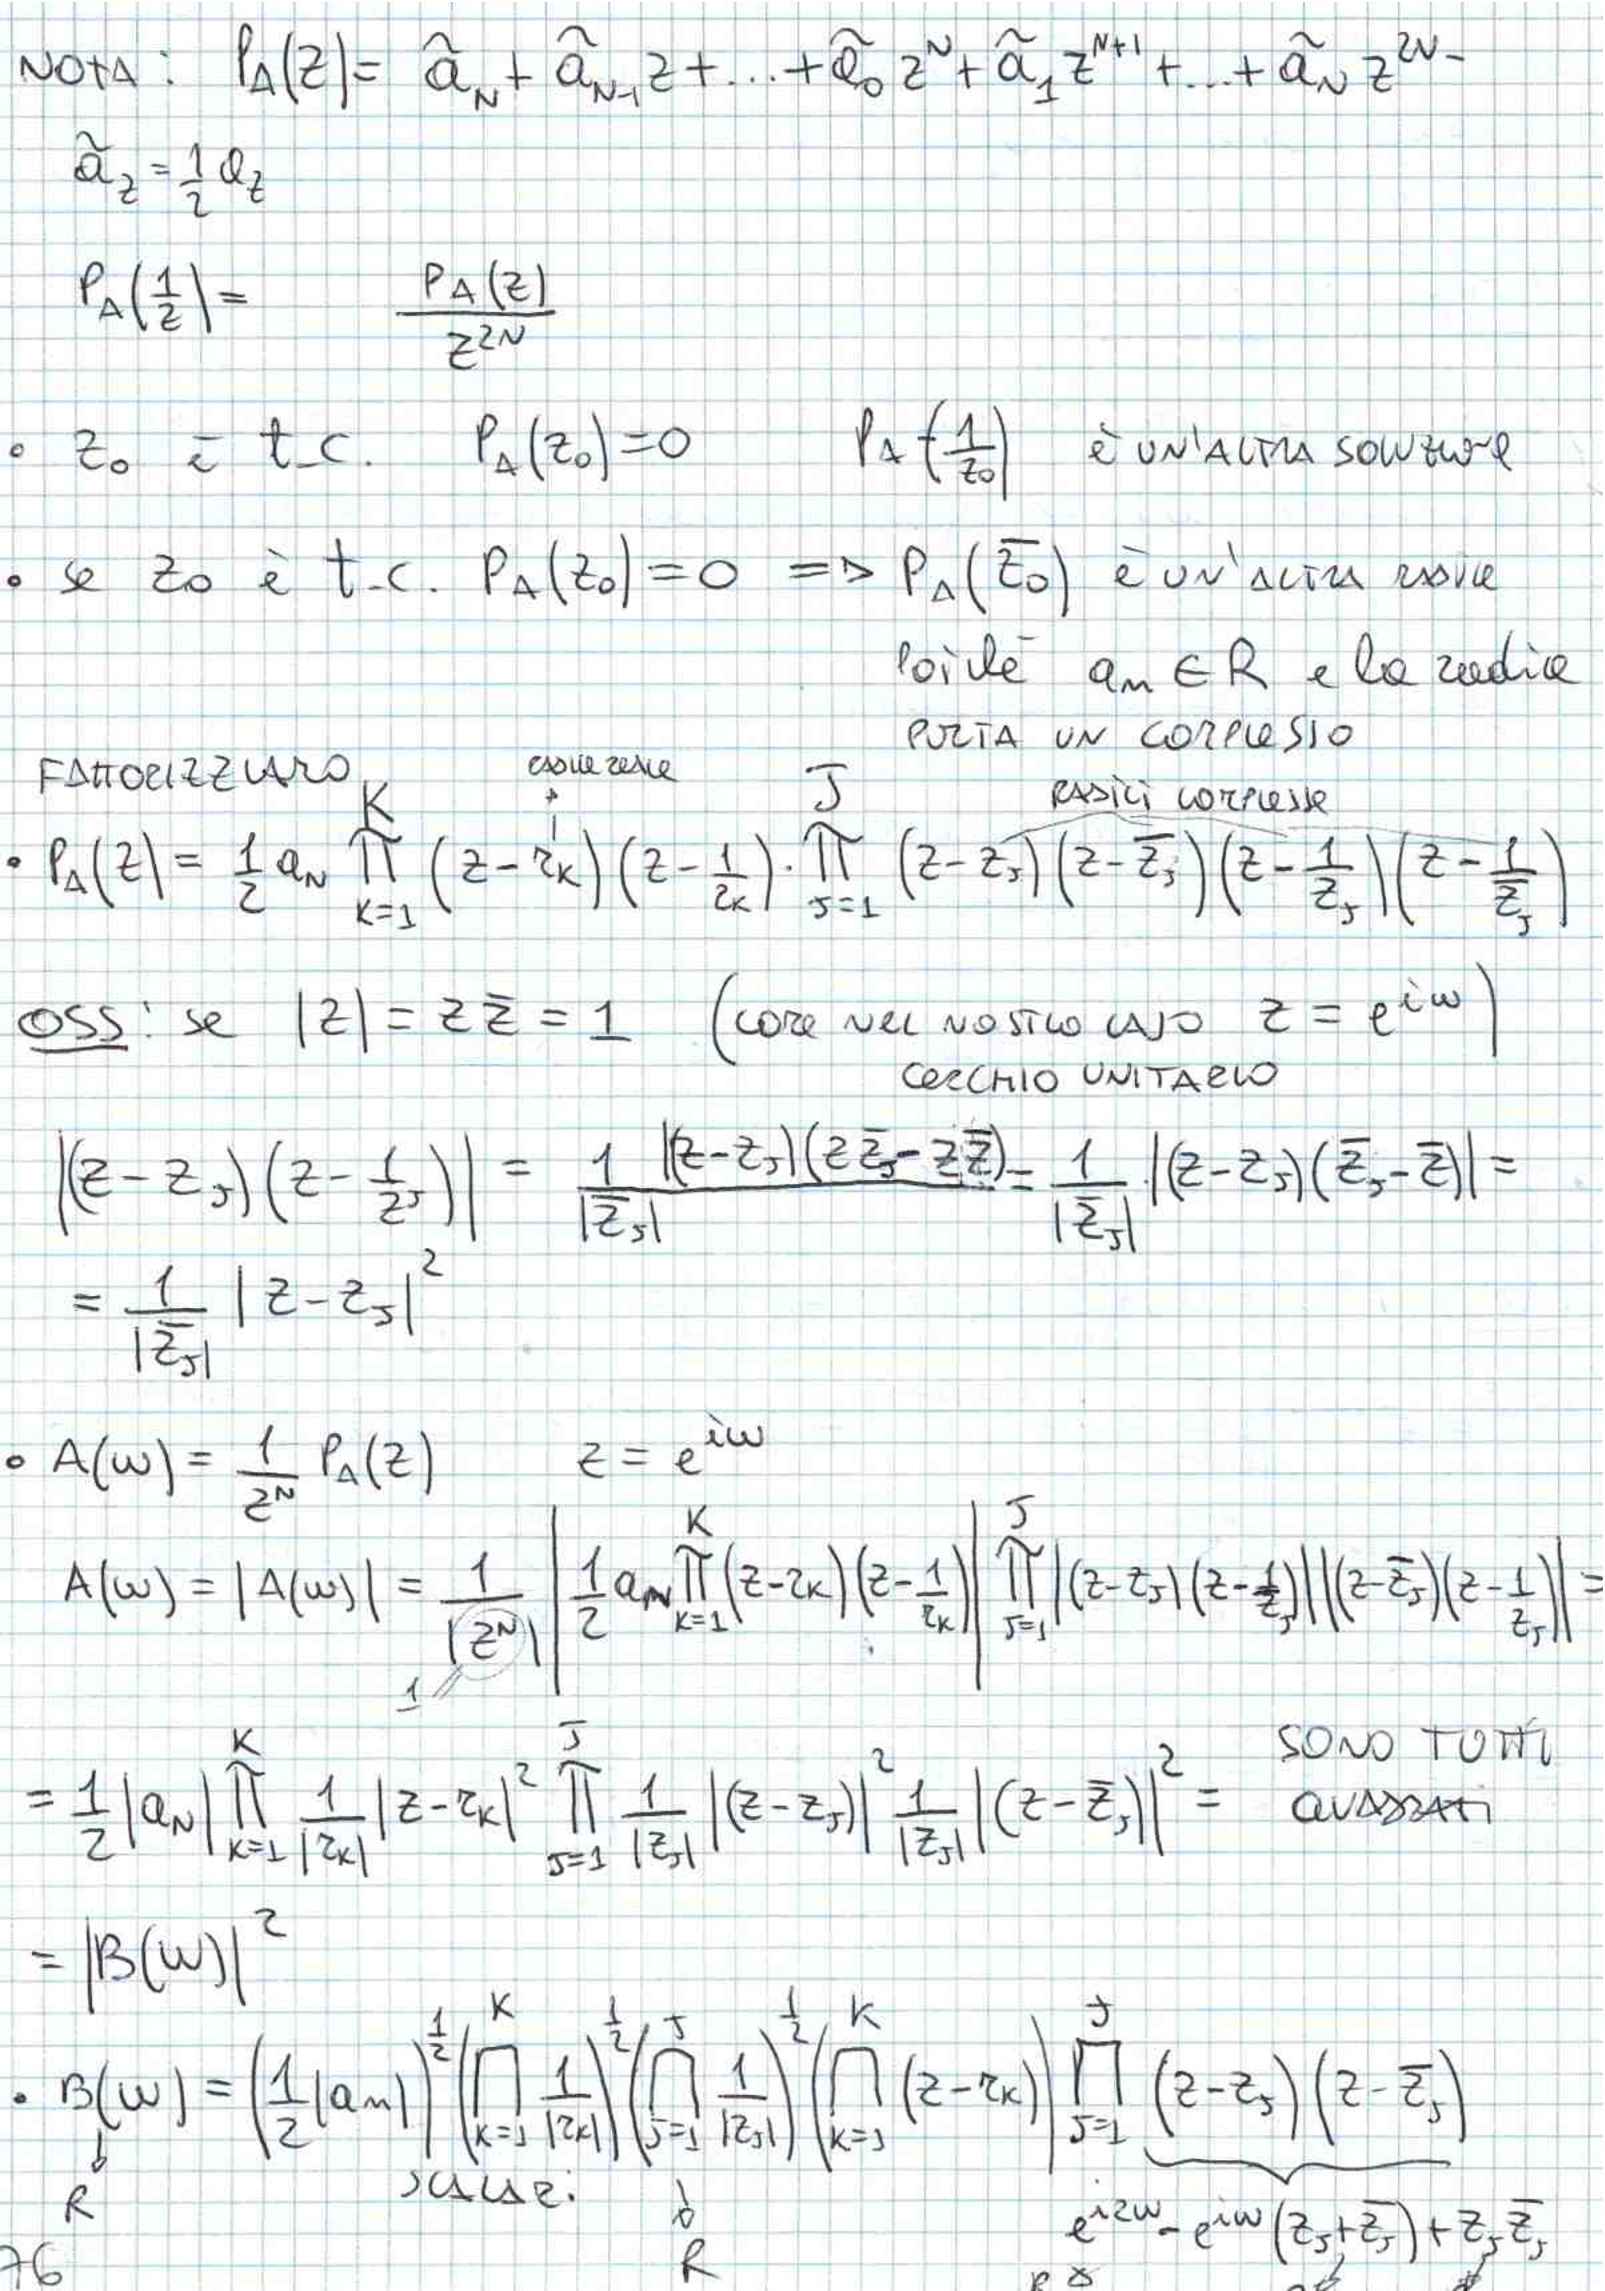 NOTA: P_A(z) = ã_N + ã_{N-1} z + ... + ã_0 z^N + ã_1 z^{N+1} + ... + ã_N z^{2N-
ã_z = 1/2 a_z
P_A(1/z) = P_A(z) / z^{2N}
• z_0 è t.c. P_A(z_0) = 0 P_A(1/z_0) è UN'ALTRA SOLUZIONE
• se z_0 è t.c. P_A(z_0) = 0 => P_A(z̄_0) è UN'ALTRA RADICE
poiché a_n ∈ R e la radice
PORTA UN COMPLESSO
FATTORIZZIAMO radice reale RADICI COMPLESSE
• P_A(z) = 1/2 a_N ∏_{K=1}^{K} (z - r_K)(z - 1/r_K) · ∏_{J=1}^{J} (z - z_J)(z - z̄_J)(z - 1/z_J)(z - 1/z̄_J)
OSS: se |z| = z z̄ = 1 (COME NEL NOSTRO CASO z = e^{iω})
CERCHIO UNITARIO
|(z - z_J)(z - 1/z_J)| = 1/|z̄_J| |(z - z_J)(z z̄_J - z z̄) = 1/|z̄_J| · |(z - z_J)(z̄_J - z̄)| =
= 1/|z̄_J| |z - z_J|^2
• A(ω) = 1/z^N P_A(z) z = e^{iω}
A(ω) = |A(ω)| = 1/|z^N| |1/2 a_N ∏_{K=1}^{K} (z - r_K)(z - 1/r_K)| ∏_{J=1}^{J} |(z - z_J)(z - 1/z̄_J)| |(z - z̄_J)(z - 1/z_J)| =
1
= 1/2 |a_N| ∏_{K=1}^{K} 1/|r_K| |z - r_K|^2 ∏_{J=1}^{J} 1/|z_J| |(z - z_J)|^2 1/|z_J| |(z - z̄_J)|^2 = SONO TUTTI
QUADRATI
= |B(ω)|^2
• B(ω) = (1/2 |a_n|)^{1/2} (∏_{K=1}^{K} 1/|r_K|)^{1/2} (∏_{J=1}^{J} 1/|z_J|)^{1/2} (∏_{K=1}^{K} (z - r_K)) ∏_{J=1}^{J} (z - z_J)(z - z̄_J)
R SCALARI R e^{i2ω} - e^{iω}(z_J + z̄_J) + z_J z̄_J
76